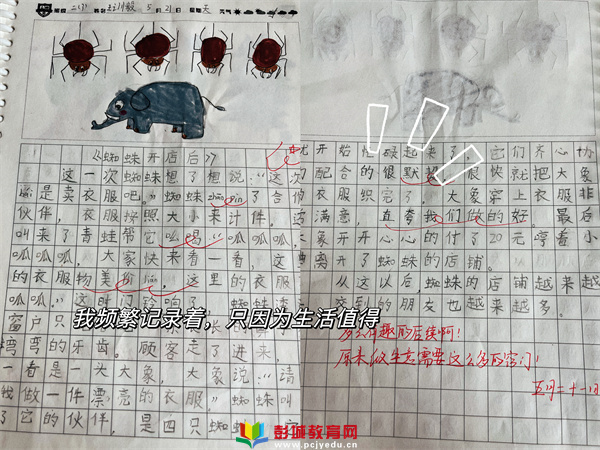 5月21日
《蜘蛛开店后》
这一次蜘蛛想了想说:“这次
是卖衣服吧。”蜘蛛zhāo pìn了合作
伙伴,衣服按照大小来计件。
叫来了青蛙帮它吆喝“呱呱,
呱呱呱,大家快来看一看,这
的衣服物美价lián,这里的衣服
呱呱。”这时门铃响了,
窗户只
弯弯的牙齿。顾客走了进来,
一看是一头大象,大象说:“请
我做一件漂亮的衣服”蜘蛛叫
了它的伙伴,是四只蜘蛛
就开始忙碌起来了,它们齐心协
配合的很默契,很快就把大象
衣服织完了,大象穿上衣服非
满意,直夸我们做的好,最后
象开开心心的付了20元哼着小
离开了蜘蛛的店铺。
从这以后蜘蛛的店铺越来越
交到的朋友也越来越多。
多么有趣的后续啊!
原来做生意需要这么多的窍门!
我频繁记录着,只因为生活值得
彭城教育网
www.pcjyedu.cn